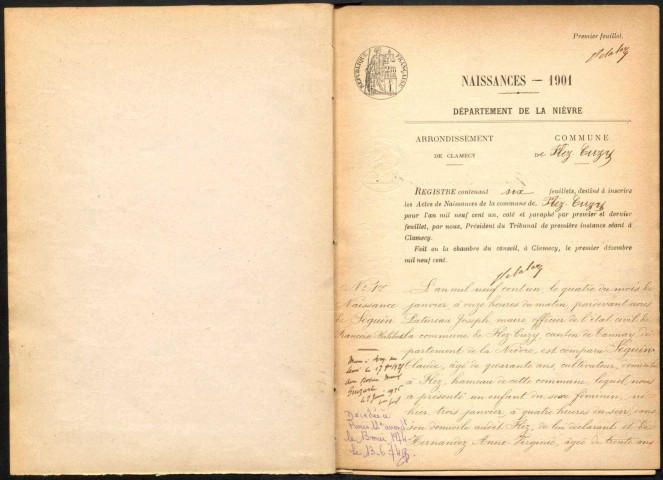 Premier feuillet.
RÉPUBLIQUE FRANÇAISE
NAISSANCES — 1901
DÉPARTEMENT DE LA NIÈVRE
ARRONDISSEMENT
DE CLAMECY
COMMUNE
DE Flez Cuzy
REGISTRE contenant six feuillets, destiné à inscrire
les Actes de Naissances de la commune de Flez Cuzy
pour l'an mil neuf cent un, coté et paraphé par premier et dernier
feuillet, par nous, Président du Tribunal de première instance séant à
Clamecy.
Fait en la chambre du conseil, à Clamecy, le premier décembre
mil neuf cent.
Naissance
de Séguin
L'an mil neuf cent un, le quatre du mois de
janvier, à onze heures du matin, pardevant nous
Joseph, maire officier de l'état civil de
la commune de Flez Cuzy, canton de Tannay, dé-
partement de la Nièvre, est comparu Séguin
Claude, âgé de quarante ans, cultivateur,
à Flez, hameau de cette commune, lequel nous
a présenté un enfant du sexe féminin, né
hier, trois janvier, à quatre heures du soir, dans
son domicile audit Flez, de lui déclarant et de
Anne Virginie, âgée de trente ans
Décédée à
Paris
le 13 mai 1974
le 13.6.74